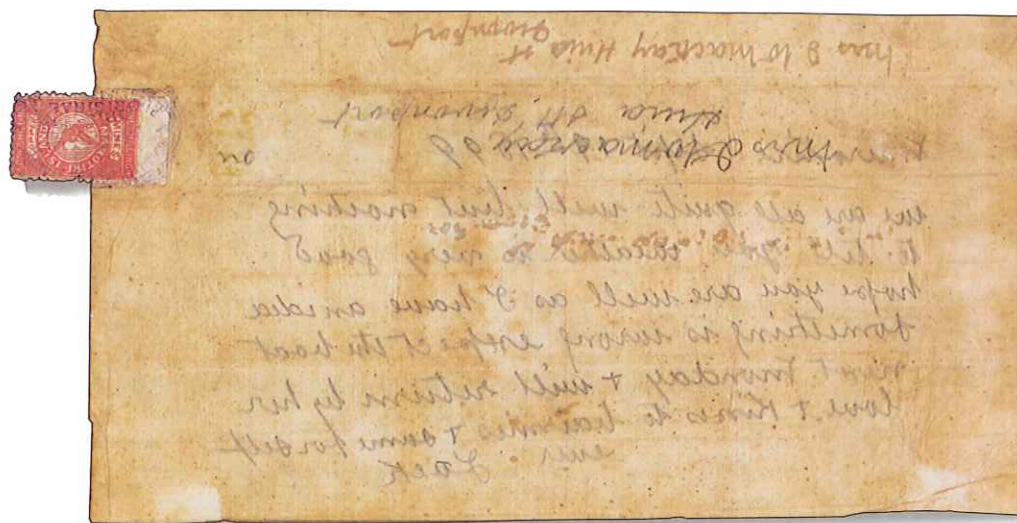 Mrs J W Mackay Huia St
Devonport
Huia St. Devonport
Mrs J W Mackay
we are all quite well but nothing
to tell you, weather is very good
hope you are well as I have an idea
something is wrong expect the boat
next monday + will return by her
love + kisses to bairnies + same for self
ever
Jack